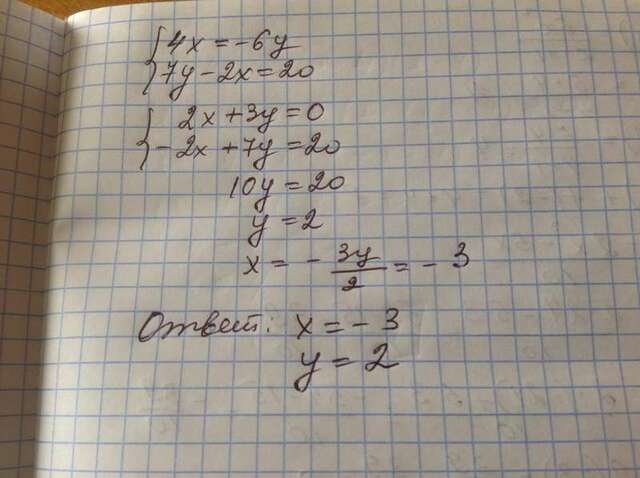 4x = -6y
7y - 2x = 20
2x + 3y = 0
- 2x + 7y = 20
10y = 20
y = 2
x = - 3y/2 = - 3
Ответ: x = - 3
y = 2